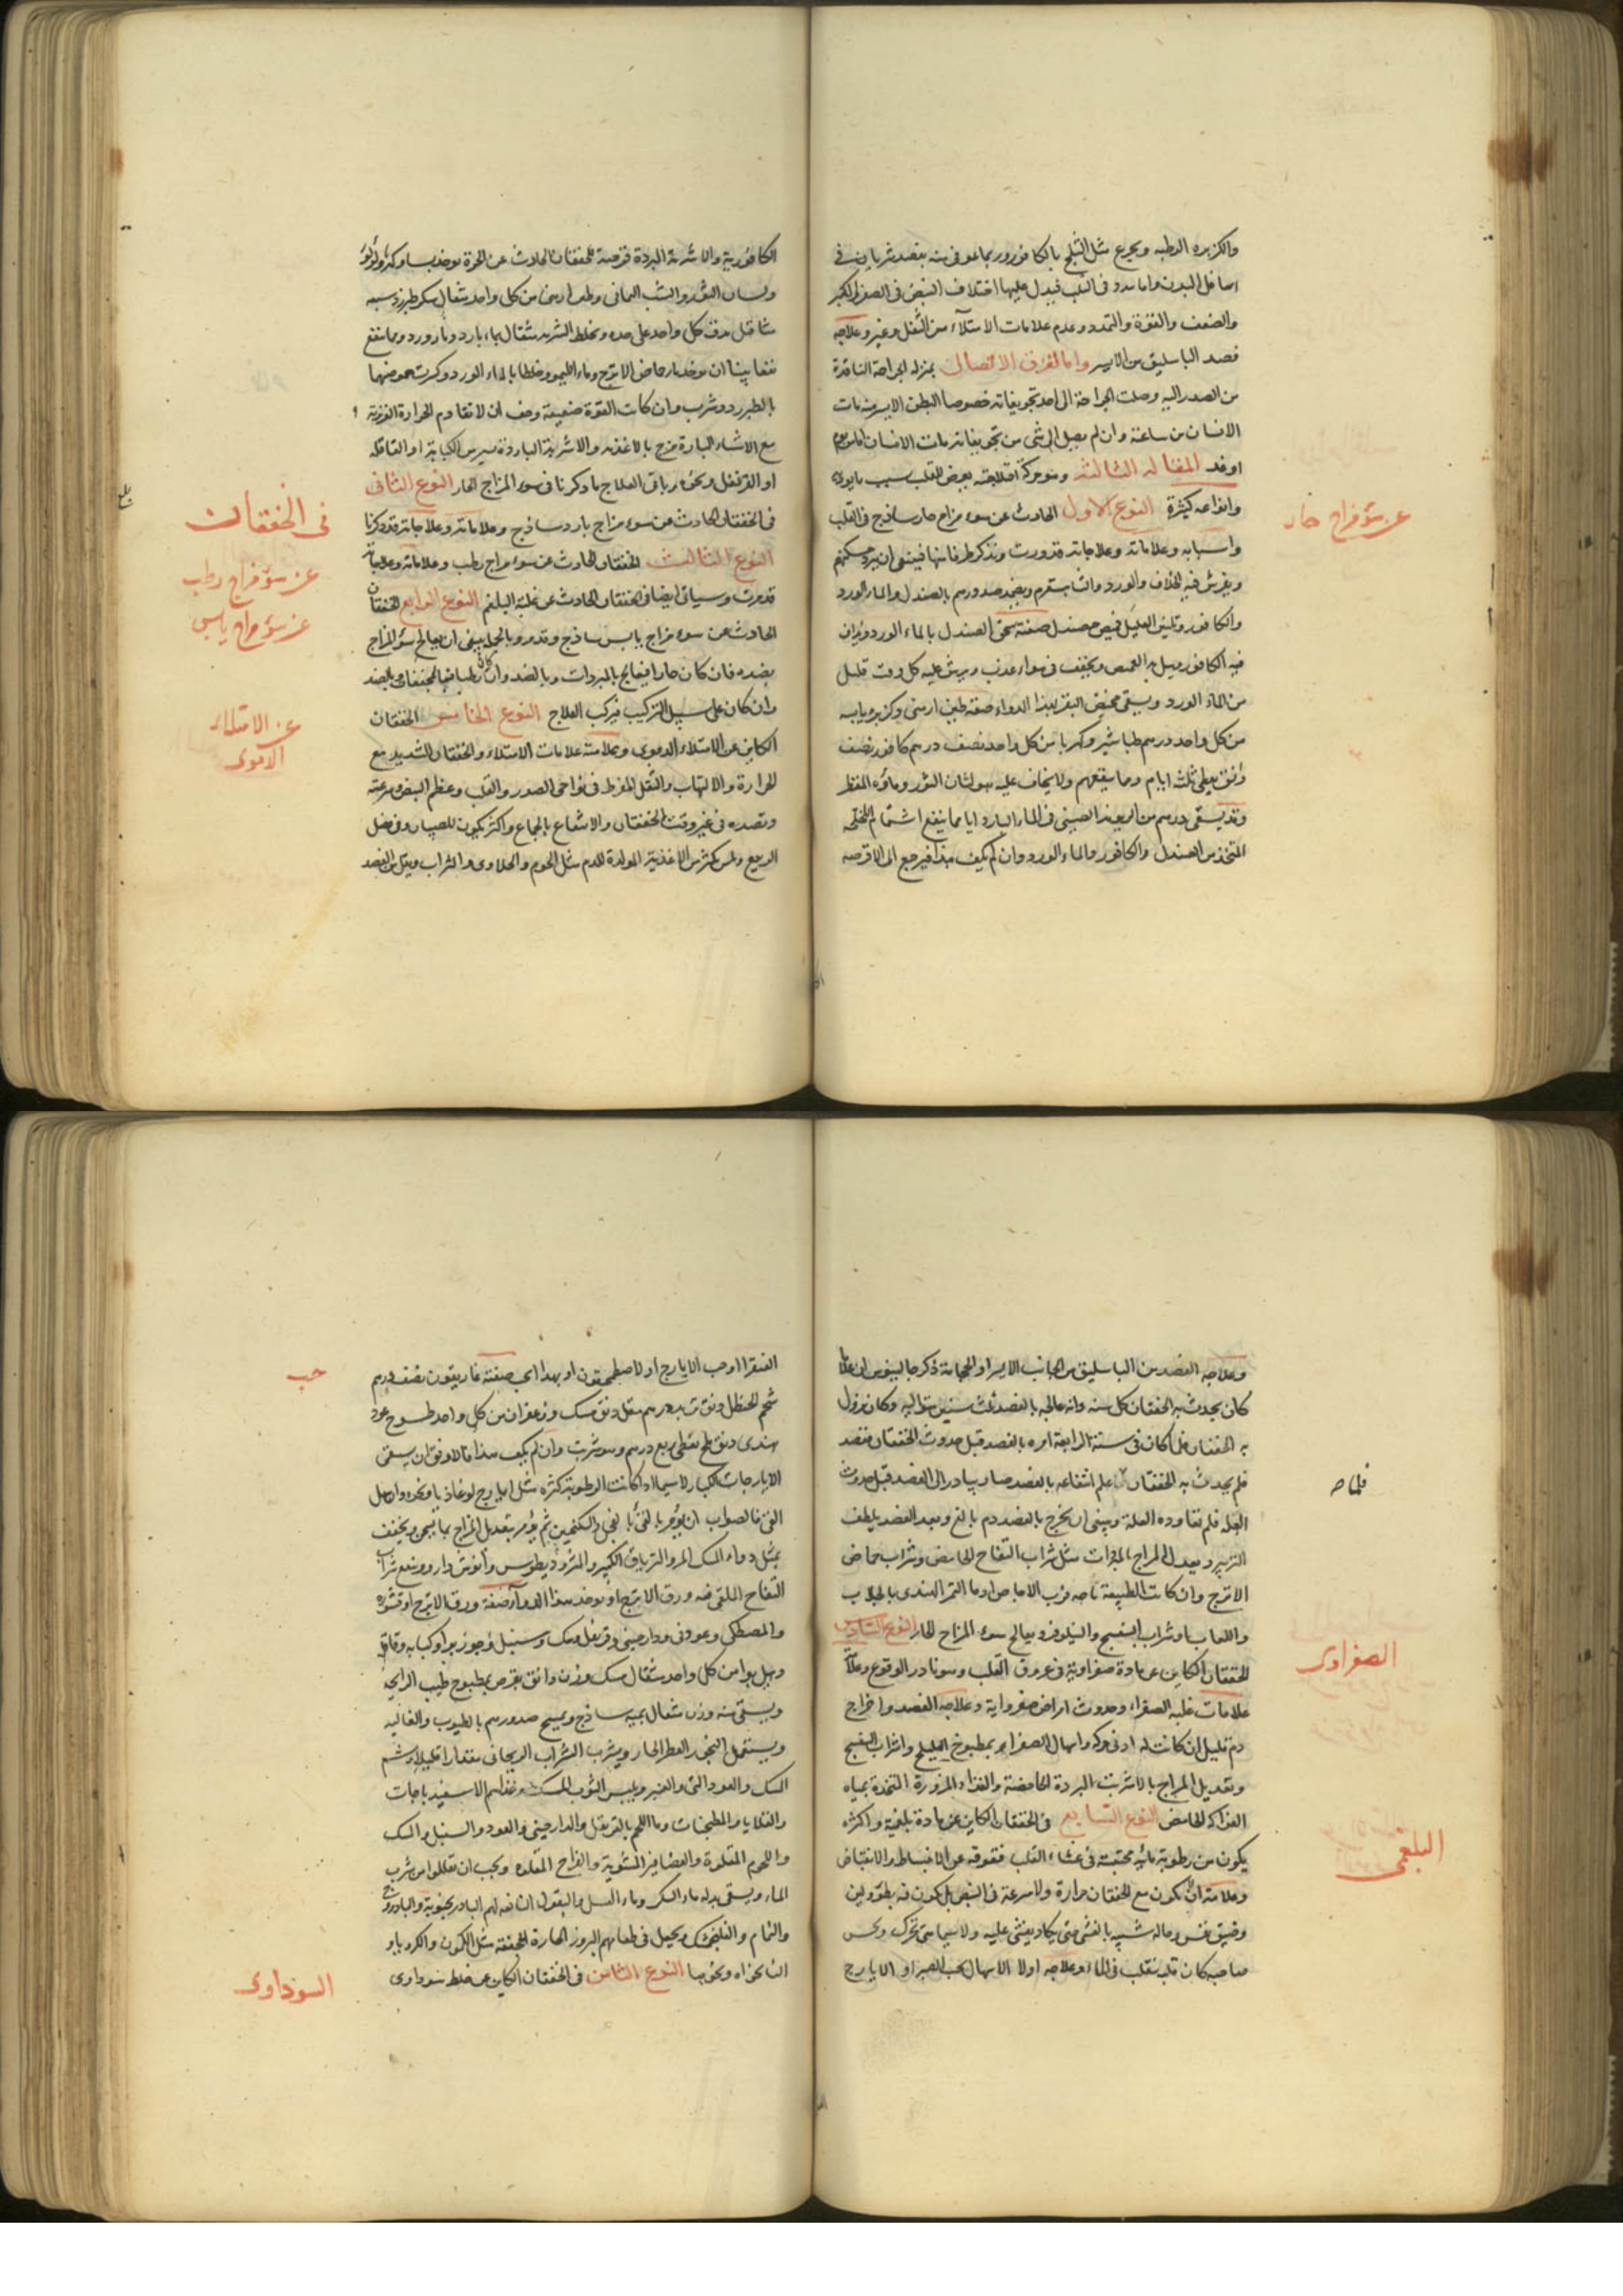 والكزبره الرطبه ويجرع مثل الثلج بالكافور وربما عوفى منه بفصد شريان فى
اسافل البدن واما سدد فى القلب فيدل عليها اختلاف النبض فى الصغر والكبر
والضعف والقوة والتمدد وعدم علامات الامتلآء من الثقل وغيره وعلاجه
فصد الباسليق من الايسر واما تفرق الاتصال بمنزله الجراحة النافذة
من الصدر اليه وصلت الجراحة الى احد تجويفاته خصوصا البطن الايسر منه مات
الانسان من ساعته وان لم يصل الى شى من تجويفاته مات الانسان اما من يوم
او غد المقاله الثالثه وهو حركة اختلاجية يعرض للقلب بسبب ما يوذيه
وانواعه كثيرة النوع الاول الحادث عن سوء مزاج حار ساذج فى القلب
عن سوء مزاج حار
واسبابه وعلاماته وعلاجاته قد ورت ونذكر طرفا منها فينبغى ان يبرد مسكنهم
ويفرش فيه الخلاف والورد والشاهسفرم ويضمد صدورهم بالصندل والماء الورد
والكافور ويلبس العليل قميص مصندل صفته يسحق الصندل بالماء الورد ويداف
فيه الكافور ويبل به القميص ويجفف فى هواء عذب ويرش عليه كل وقت قليل
من الماء الورد ويسقى مخيض البقر بهذا الدواء صفته طين ارمنى وكزبره يابسه
من كل واحد درهم طباشير وكهربا من كل واحد نصف درهم كافور نصف
دانق يعطى ثلثة ايام ومما ينفعهم ولا يخاف عليه هو لسان الثور وماؤه المقطر
وقد يسقى درهم من الريوند الصينى فى الماء البارد اياما مما ينفع اشتمام اللخلخه
المتخذ من الصندل والكافور والماء الورد وان لم يكف هذا فيرجع الى الاقرصه
الكافورية والاشربة المبردة قرصة للخفقان الحادث عن الحرة يوخذ بسد وكهربا ولؤلؤ
ولسان الثور والشب اليمانى وطين ارمنى من كل واحد مثقال سكر طبرزد سبعه
مثاقيل يدق كل واحد على حده ويخلط الشربه مثقال بماء بارد وماء ورد ومما ينفع
نفعا بينا ان يوخذ ماء حماض الاترج وماء الليمو وخلطا بالماء الورد وكسرت حموضتها
بالطبرزد وشرب وان كانت القوة ضعيفة وخيف ان لا تقاوم الحرارة الغريزية
مع الاشياء الباردة مزج بالاغذيه والاشربة الباردة يسير من الكبابة او القاقله
او القرنفل ونحوه وباقى العلاج ما ذكرنا فى سوء المزاج الحار النوع الثانى
فى الخفقان
فى الخفقان الحادث عن سوء مزاج بارد ساذج وعلاماته وعلاجاته قد ذكرنا
النوع الثالث الخفقان الحادث عن سوء مزاج رطب وعلاماته وعلاجاته
عن سوء مزاج رطب
قد مرت وسياتى ايضا فى الخفقان الحادث عن غلبة البلغم النوع الرابع الخفقان
عن سوء مزاج يابس
الحادث عن سوء مزاج يابس ساذج وقد مر وبالجملة ينبغى ان يعالج سوء المزاج
بضده فان كان حارا فيعالج بالمبردات وبالضد وان كان رطبا فبالمجففات وبالضد
وان كان على سبيل التركيب فيركب العلاج النوع الخامس الخفقان
عن الامتلاء
الدموى
الكاين عن الامتلاء الدموى وعلامته علامات الامتلاء والخفقان الشديد مع
الحرارة والالتهاب والثقل المفرط فى نواحى الصدر والقلب وعظم النبض وسرعته
وقصده فى غير وقت الخفقان والانتفاع بالجماع واكثر يكون للصبيان وفى فصل
الربيع ولمن يكثر من الاغذية المولدة للدم مثل اللحوم والحلاوى والشراب ويقل من الفصد
وعلاجه الفصد من الباسليق من الجانب الايسر او الحجامة ذكر جالينوس ان غلاما
كان يحدث به الخفقان كل سنه وانه عالجه بالفصد ثلث سنين متواليه وكان يزول
به الخفقان فلما كان فى سنة الرابعة امره بالفصد قبل حدوث الخفقان ففصد
فلم يحدث به الخفقان علم انتفاعه بالفصد صار يبادر الى الفصد قبل حدوث
فلما
العله فلم تعاوده العلة وينبغى ان يخرج بالفصد دم بالغ وبعد الفصد يلطف
التدبير ويعدل المزاج بالمبردات مثل شراب التفاح الحامض وشراب حماض
الاترج وان كانت الطبيعة يابسه فرب الاجاص او ماء التمر الهندى بالجلاب
واللعاب او شراب البنفسج والنيلوفر ويعالج سوء المزاج الحار النوع السادس
الخفقان الكاين عن مادة صفراوية فى عروق القلب وهو نادر الوقوع وعلاماته
الصفراوى
علامات غلبه الصفراء وحدوث امراض صفراوية وعلاجه الفصد واخراج
دم قليل ان كانت له ادنى حركه واسهال الصفراء بمطبوخ الهليلج واشراب البنفسج
وتعديل المزاج بالاشربت المبردة الحامضة والغذاء المزورة المتخذة بمياه
الفواكه الحامض النوع السابع فى الخفقان الكاين عن مادة بلغمية واكثره
البلغمى
يكون من رطوبة مائيه محتبسة فى غشاء القلب فتعوقه عن الانبساط والانقباض
وعلامته ان لا يكون مع الخفقان حرارة ولا سرعة فى النبض بل يكون فيه بطؤ ولين
وضيق نفس وحاله شبيه بالغشى حتى يكاد يغشى عليه ولا سيما متى تحرك ويحس
صاحبه كان قلبه ينقلب فى الماء وعلاجه اولا الاسهال بحب الصبر او الايارج
الفيقرا او حب الايارج او لاصطمخيقون او بهذا الحب صفته غاريقون نصف درهم
حب
شحم الحنظل دانق تربد درهم مقل دانق مسك وزعفران من كل واحد طسوج عود
هندى دانق ملح نفطى ربع درهم وهو شربت وان لم يكف هذا فالاوفق ان يسقى
الايارجات الكبار لاسيما اذا كانت الرطوبة كثيره مثل ايارج لوغاذيا ونحوه واحمل
القئ فالصواب ان يؤمر بالقئ بالفجل والسكنجبين ثم يؤمر بتعديل المزاج بما يسخن ويجفف
بمثل دواء المسك المر والترياق الكبير والمثروديطوس وانوش دارو وينفع شراب
التفاح الملقى فيه ورق الاترج او يوخذ بهذا الدوآء صفته ورق الاترج او قشوره
والمصطكى وعود نى ودارصينى وقرنفل وسك وسنبل وجوز بوا وكبابه وقاقله
وهيل بوا من كل واحد مثقال مسك وزن دانق يقرص بمطبوخ طيب الرائحه
ويسقى منه وزن مثقال بميبه ساذج ويمسح صدورهم بالطيوب والغاليه
ويستعمل التبخير العطر الحار ويشرب الشراب الريحانى مقدارا قليلا ويشم
المسك والعود النى والعنبر ويلبس الثوب الممسك وغذاهم الاسفيدباجات
والقلايا والمطجنات وماء اللحم بالقرنفل والدارصينى والعود والسنبل والمسك
واللحوم المقلوة والعصافير المشوية والفراخ المقلوه ويجب ان يقللوا من شرب
الماء ويسقى بدله ماء السكر وماء العسل والبقول النافعه لهم البادرنجبوية والبادروج
والنمام والفلنجمشك ويجعل فى طعامهم البزور الحارة المجففة مثل الكمون والكرويا و
النانخواه ونحوها النوع الثامن فى الخفقان الكاين عن خلط سوداوى
السوداوى